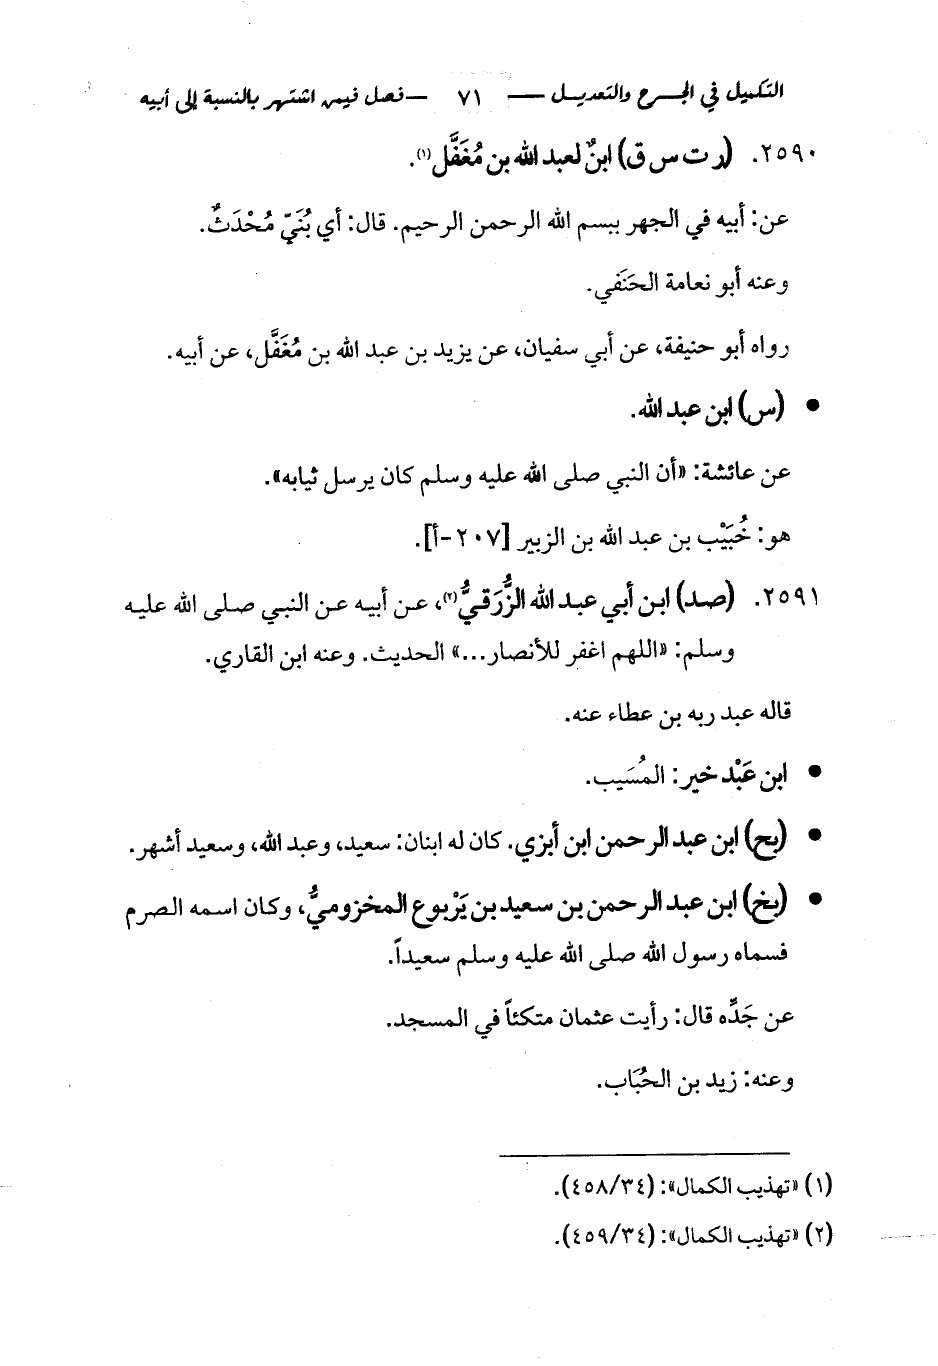 التكميل في الجرح والتعديل — ٧١ — فصل فيمن اشتهر بالنسبة إلى أبيه
٢٥٩٠. (ر ت س ق) ابنٌ لعبد الله بن مُغَفَّل(١).
عن: أبيه في الجهر ببسم الله الرحمن الرحيم. قال: أي بُنَيّ مُحْدَثٌ.
وعنه أبو نعامة الحَنَفي.
رواه أبو حنيفة، عن أبي سفيان، عن يزيد بن عبد الله بن مُغَفَّل، عن أبيه.
• (س) ابن عبد الله.
عن عائشة: «أن النبي صلى الله عليه وسلم كان يرسل ثيابه».
هو: خُبَيْب بن عبد الله بن الزبير [٢٠٧-أ].
٢٥٩١. (صد) ابن أبي عبد الله الزُّرَقيُّ(٢)، عن أبيه عن النبي صلى الله عليه
وسلم: «اللهم اغفر للأنصار...» الحديث. وعنه ابن القاري.
قاله عبد ربه بن عطاء عنه.
• ابن عَبْد خير: المُسَيب.
• (بح) ابن عبد الرحمن ابن أبزي. كان له ابنان: سعيد، وعبد الله، وسعيد أشهر.
• (بخ) ابن عبد الرحمن بن سعيد بن يَرْبوع المخزوميُّ، وكان اسمه الصرم
فسماه رسول الله صلى الله عليه وسلم سعيداً.
عن جَدِّه قال: رأيت عثمان متكئاً في المسجد.
وعنه: زيد بن الحُبَاب.
(١) «تهذيب الكمال»: (٤٥٨/٣٤).
(٢) «تهذيب الكمال»: (٤٥٩/٣٤).